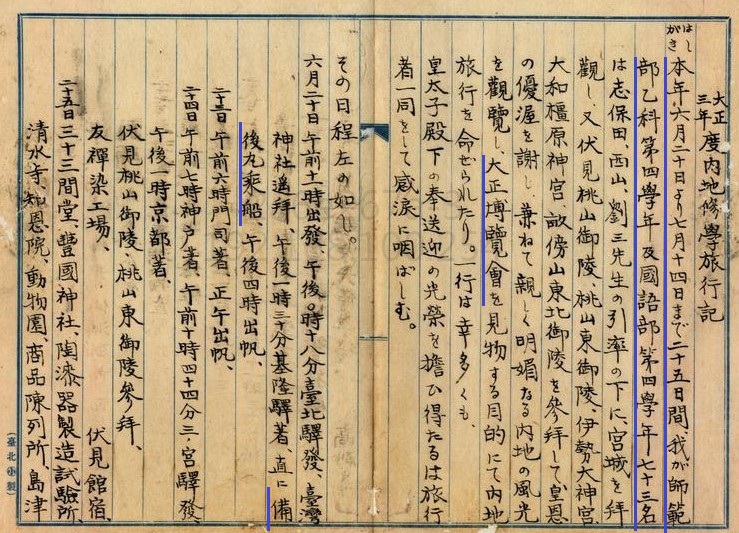 大正三年度内地修學旅行記
はしがき
本年六月二十日より七月十四日まで二十五日間、我が師範
部乙科第四學年及國語部第四學年七十三名
は志保田、西山、劉三先生の引率の下に、宮城を拜
觀し、又伏見桃山御陵、桃山東御陵、伊勢大神宮、
大和橿原神宮、畝傍山東北御陵を參拜して皇恩
の優渥を謝し、兼ねて親しく明媚なる内地の風光
を觀覽し、大正博覽會を見物する目的にて内地
旅行を命ぜられたり。一行は幸多くも、
皇太子殿下の奉送迎の光榮を擔ひ得たるは旅行
者一同をして感涙に咽ばしむ。
その日程左の如し。
六月二十日午前十一時出發、午後0時十八分臺北驛發、臺灣
神社遙拜、午後一時三十分基隆驛著、直に備
後丸乘船、午後四時出帆、
二十三日午前六時門司著、正午出帆、
二十四日午前七時神戸著、午前十時四十四分三ノ宮驛發、
午後一時京都著、
伏見桃山御陵、桃山東御陵參拜、
友禪染工場、伏見館宿、
二十五日三十三間堂、豐國神社、陶漆器製造試驗所、
清水寺、知恩院、動物園、商品陳列所、島津
(臺北小製)